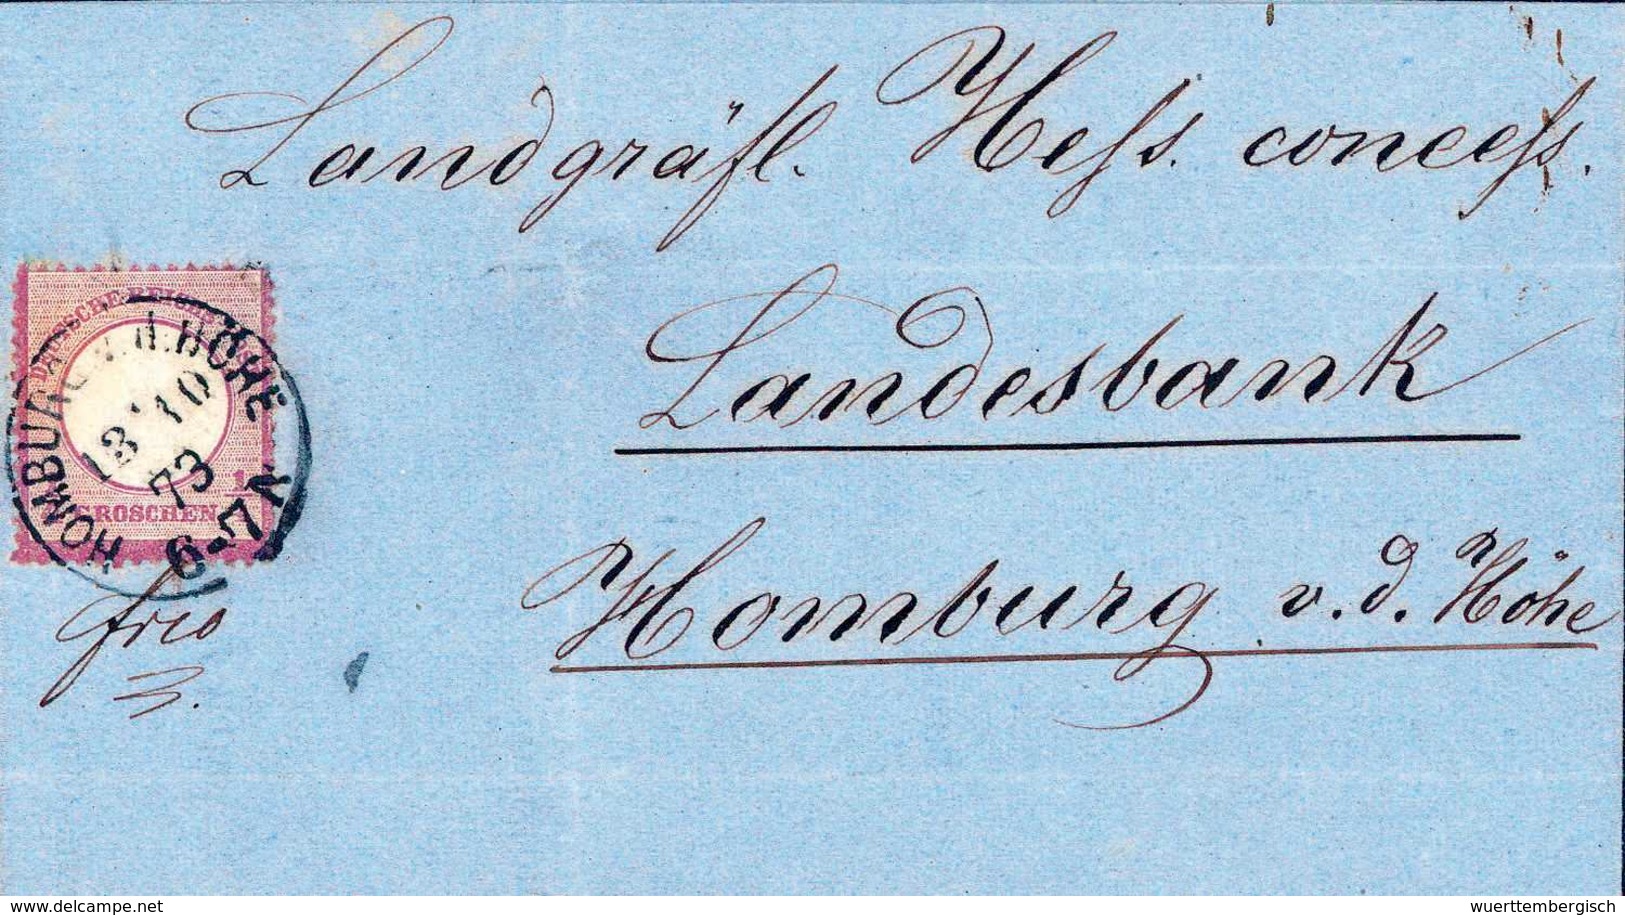 Landgräfl. Hess. concess.
Landesbank
Homburg v. d. Höhe
DEUTSCHE REICHS
GROSCHEN
HOMBURG V.D.HÖHE
13 10
73
6-7 N
frco
www.delcampe.net
wuerttembergisch